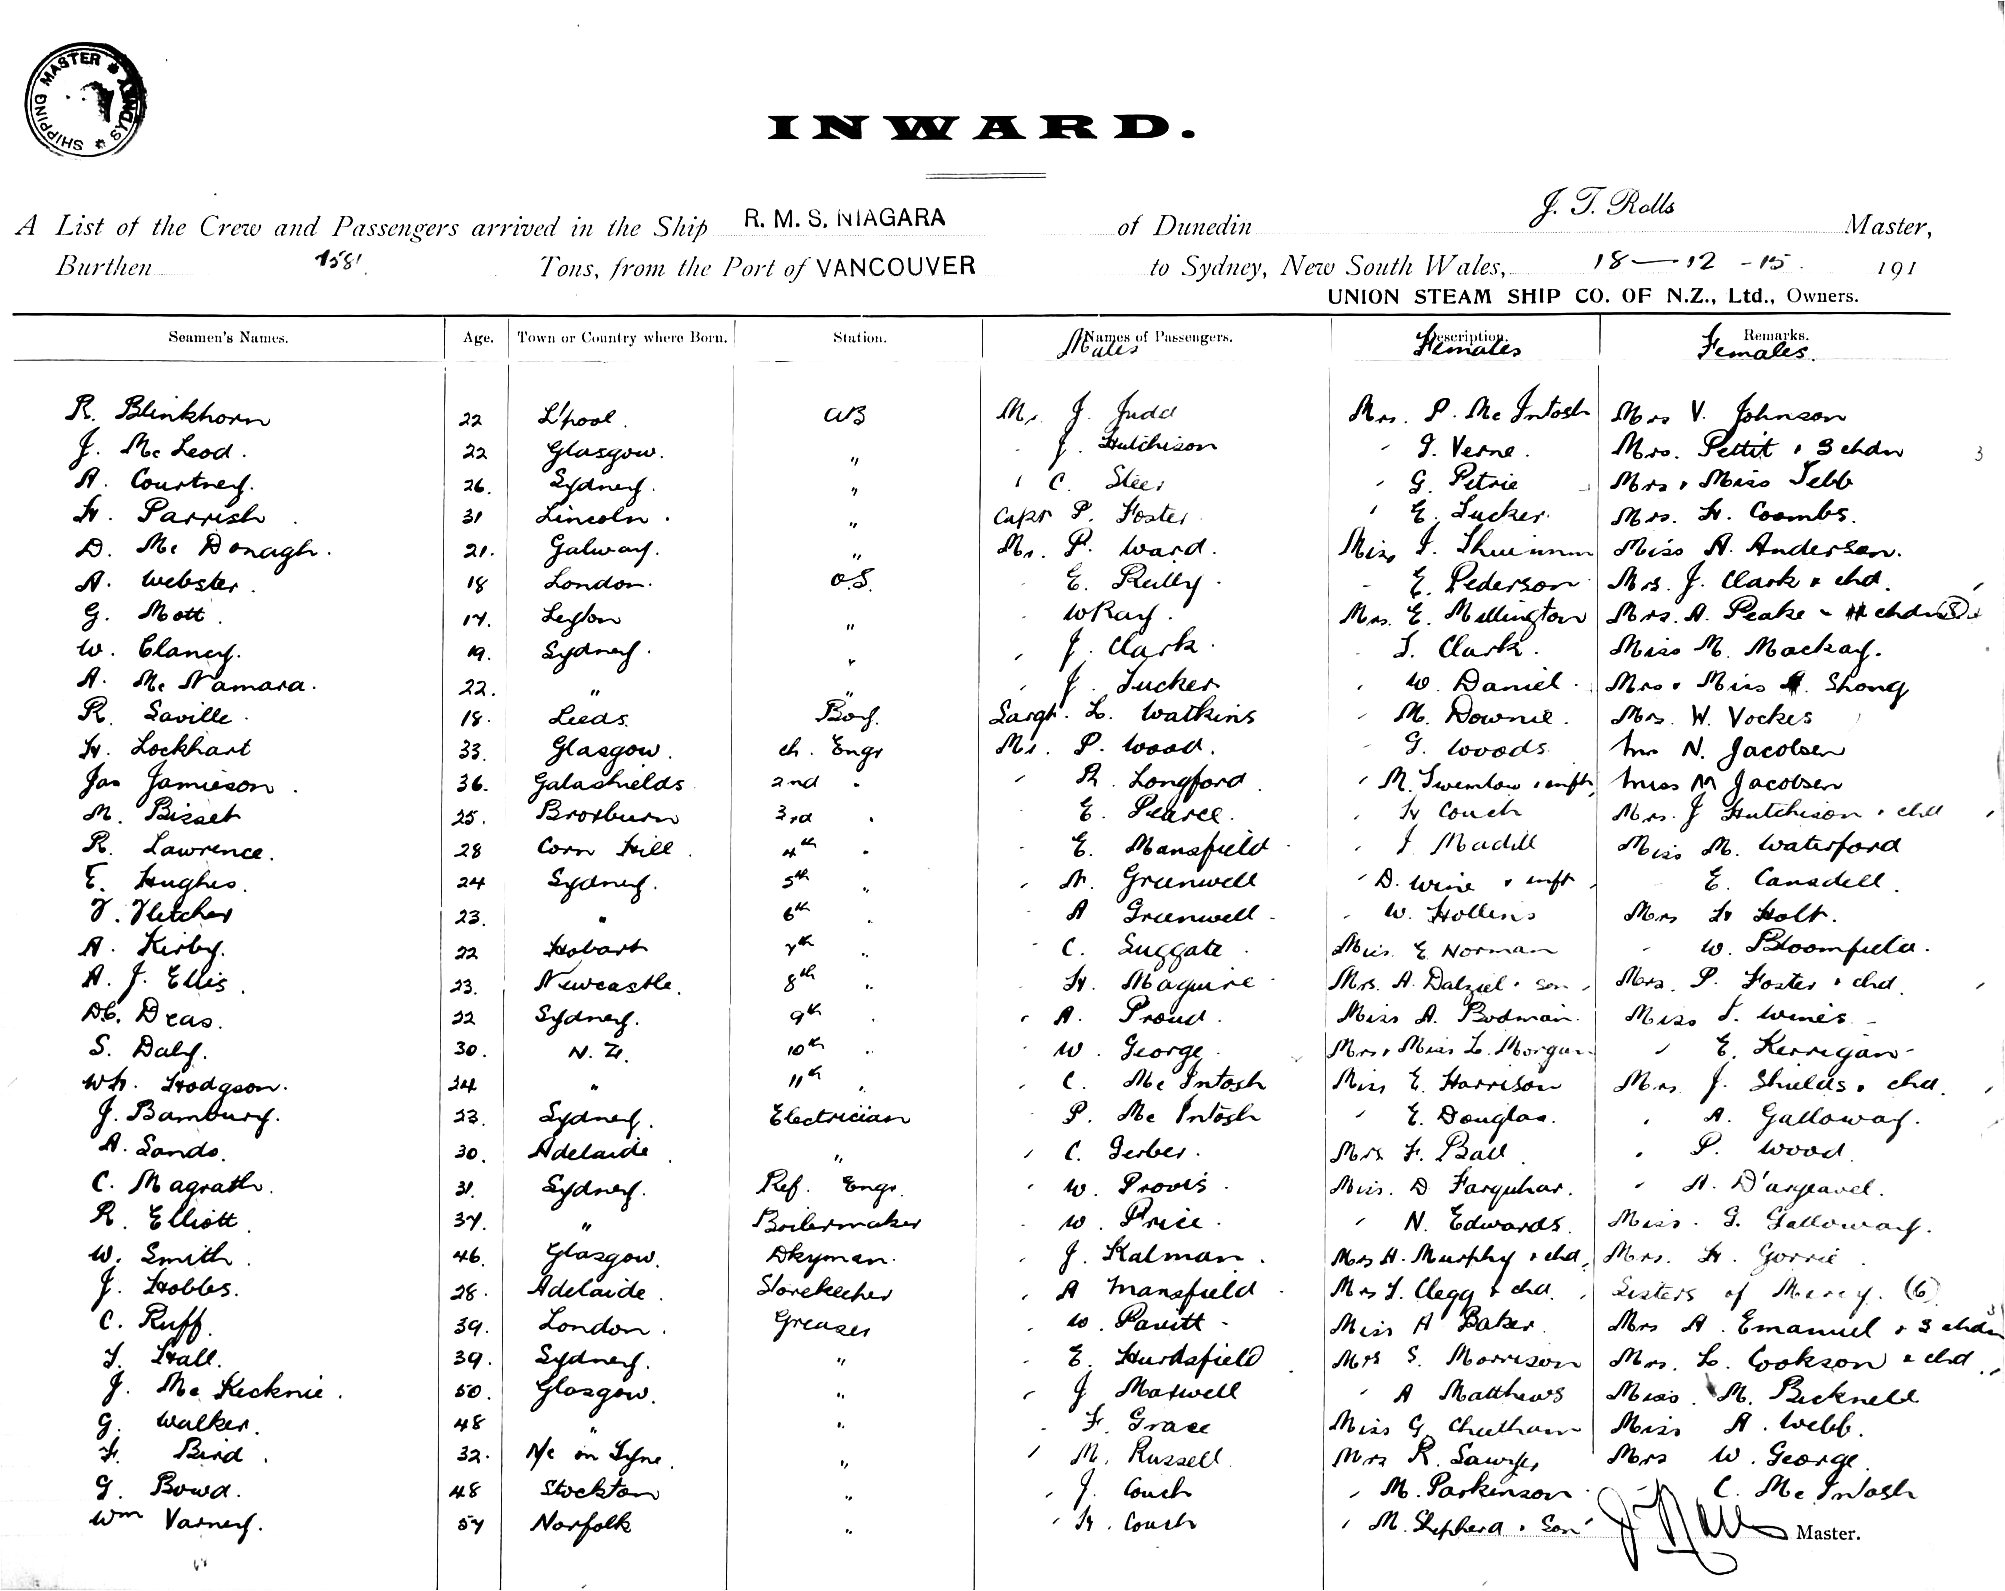 SHIPPING MASTER * SYDNEY *
INWARD.
A List of the Crew and Passengers arrived in the Ship R. M. S. NIAGARA of Dunedin J. T. Rolls Master,
Burthen 7581 Tons, from the Port of VANCOUVER to Sydney, New South Wales, 18 — 12 - 15 191
UNION STEAM SHIP CO. OF N.Z., Ltd., Owners.
Seamen's Names. Age. Town or Country where Born. Station. Names of Passengers. Description. Remarks.
Males Females Females.
R. Blinkhorn 22 L'pool. AB Mr. J. Judd Mrs. P. Mc Intosh Mrs V. Johnson
J. Mc Leod. 22 Glasgow. " J. Hutchison " J. Verne. Mrs. Pettit & 3 chdn 3
A. Courtney. 26. Sydney. " " C. Steer " G. Petrie Mrs & Miss Tebb
H. Parrish 31 Lincoln. " Capt P. Foster " E. Tucker. Mrs. H. Coombs.
D. Mc Donagh. 21. Galway. " Mr. P. Ward. Miss Miss A. Anderson.
A. Webster. 18 London. O.S. E. Reilly. E. Pederson Mrs. J. Clark & chd.
G. Mott. 17. Leyton " W Ray. Mrs. E. Millington Mrs. A. Peake chdn
W. Clancy. 19. Sydney. " J. Clark. J. Clark. Miss M. Mackay.
A. Mc Namara. 22. " " J. Tucker " W. Daniel. Mrs & Miss Shong
R. Saville. 18. Leeds Boy. Sargt. L. Watkins " M. Downie. Mrs. W. Vockes
H. Lockhart 33. Glasgow. ch. Engr Mr. P. Wood. " G. Woods Mrs N. Jacobsen
Jas Jamieson. 36. Galashields 2nd " " R. Longford " M. Twemlow & inft, Miss M Jacobsen
M. Bisset 25. Broxburn 3rd " E. Pearce. " H Couch Mrs. J Hutchison & chd
R. Lawrence. 28 Corn Hill. 4th " E. Mansfield " J Madill Miss M. Waterford
E. Hughes. 24 Sydney. 5th " " A. Greenwell " D. Wine & inft E. Cansdell.
F. Fletcher 23. " 6th " " A Greenwell " W. Hollins Mrs H Holt.
A. Kirby. 22 Hobart 7th " " C. Suggate Miss E Norman " W. Bloomfield.
A. J. Ellis. 23. Newcastle. 8th " " H. Maguire Mrs. A. Dalziel & son Mrs. P. Foster & chd
Deas. 22 Sydney. 9th " " A. Proud. Miss A. Bodman. Miss J. Wines
S. Daly. 30. N. Z. 10th " W. George Mrs & Miss L. Morgan " E. Kerrigan
Wh. Hodgson. 24 " 11th " " C. Mc Intosh Miss E. Harrison Mrs. J. Shields & chd.
J. Bambury. 23. Sydney. Electrician P. Mc Intosh " E. Douglas. " A. Galloway.
A. Sands. 30. Adelaide. " " C. Gerber. Mrs F. Ball. " P. Wood.
C. Magrath. 31. Sydney. Ref. Engr. " W. Provis. Miss. D Farquhar. " A. D'argravel.
R. Elliott. 37. " Boilermaker " W. Price. " N. Edwards. Miss. G. Galloway.
W. Smith. 46. Glasgow. Dkyman. J. Kalman. Mrs H. Murphy & chd, Mrs. H. Gorrie
J. Hobbs. 28. Adelaide. Storekeeper " A Mansfield Mrs J. Clegg & chd. Sisters of Mercy. (6)
C. Ruff. 39. London. Greaser " W. Pavitt Miss A Baker. Mrs A. Emanuel & 3 chdn 3
J. Hall. 39. Sydney. " " E. Hurdsfield Mrs S. Morrison Mrs. L. Cookson & chd
J. Mc Kechnie. 50. Glasgow. " " J Maxwell " A Matthews Miss. M. Bicknell
G. Walker. 48 " " " F. Grace Miss G. Cheetham Miss A. Webb.
F. Bird. 32. N/c on Tyne. " " M. Russell Mrs R. Sawyer Mrs W. George.
G. Bowd. 48 Stockton " " J. Couch " M. Parkinson. " C. Mc Intosh
Wm Varney. 57 Norfolk " " H. Couch " M. Shepherd & Son J Rolls Master.